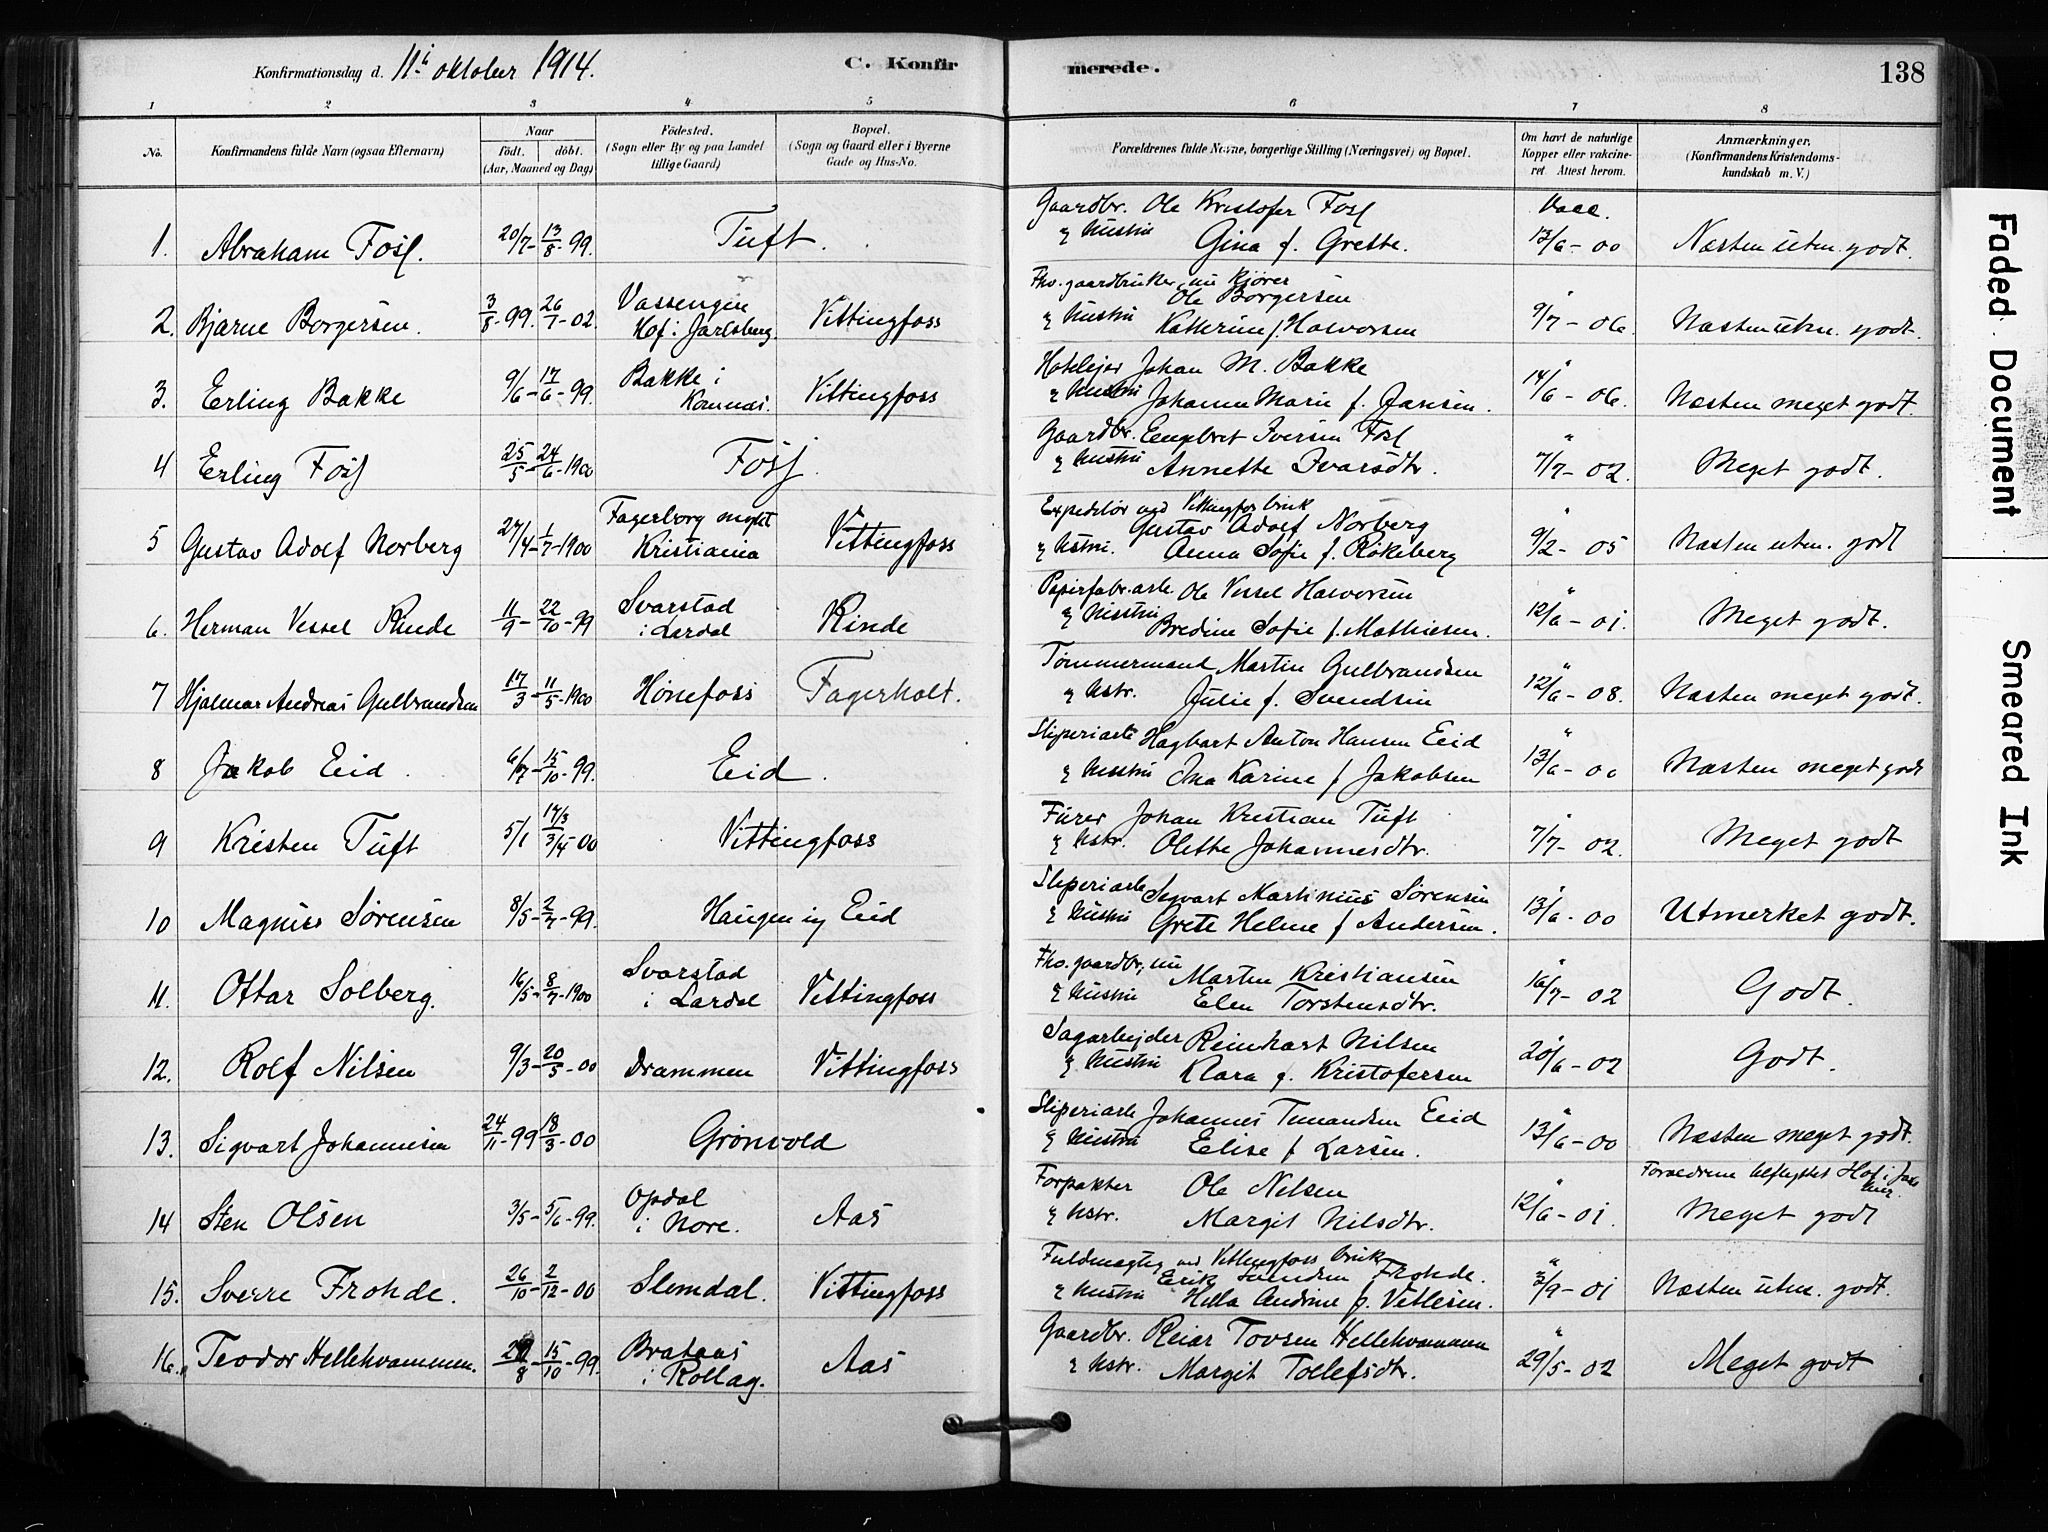 Konfirmationsdag d. 11te oktober 1914.
C. Konfirmerede.
138
1 2 3 4 5 6 7 8
No.
Konfirmandens fulde Navn (ogsaa Efternavn)
Naar
födt. döbt.
(Aar, Maaned og Dag)
Födested.
(Sogn eller By og paa Landet tillige Gaard)
Bopæl.
(Sogn og Gaard eller i Byerne Gade og Hus-No.
Forældrenes fulde Navne, borgerlige Stilling (Næringsvei) og Bopæl.
Om havt de naturlige Kopper eller vakcineret Attest herom.
Anmærkninger,
(Konfirmandens Kristendomskundskab m. V.)
1. Abraham Fosf. 20/7 - 13/8 - 99. Tuft. Gaardbr. Ole Kristofer Fosf Vacc.
& hustru Gina f. Grette. 13/6 - 00 Næsten utm. godt.
2. Bjarne Borgersen. 3/8 - 99. 26/1 - 02. Vassengen Hof i Jarlsberg. Vittingfoss Fhv. gaardbruker, nu kjører Ole Borgersen
& hustru Katterine f. Halvorsen 9/7 - 06. Næsten utm. godt.
3. Erling Bakke 9/6 - 17/6 - 99. Bakke i Komnæs. Vittingfoss Hotelejer Johan M. Bakke
& hustru Johanne Marie f. Jansen. 14/6 - 06. Næsten meget godt.
4 Erling Fosf 25/5 - 24/6 - 1900 Fosf. Gaardbr. Engebret Iversen Fosf
& hustru Annette Ivarsdtr. 7/7 - 02. Meget godt.
5 Gustav Adolf Norberg 27/4 - 1/7 - 1900 Fagerborg Kristiania Vittingfoss Expeditør ved Vittingfos bruk Gustav Adolf Norberg
& hstru. Anna Sofie f. Røkeberg 9/2 - 05 Næsten utm. godt
6. Herman Vessel Rinde 11/9 - 22/10 - 99 Svarstad i Lardal Rinde Papirfabr.arb. Ole Vessel Halvorsen
& hustru Bredine Sofie f. Mathiesen. 12/6 - 01. Meget godt.
7 Hjalmar Andreas Gulbrandsen 17/3 - 11/5 - 1900 Hønefoss Fagerholt. Tømmermand Martin Gulbrandsen
& hstr. Julie f. Svendsen 12/6 - 08. Næsten meget godt.
8 Jakob Eid. 6/7 - 15/10 - 99. Eid. Sliperiarb. Hagbart Anton Hansen Eid
& hustru Ina Karine f Jakobsen 13/6 - 00 Næsten meget godt
9 Kristen Tuft 5/1 17/3 3/4 - 00 Vittingfoss Fürer Johan Kristian Tuft
& hstr. Olette Johannesdtr. 7/7 - 02. Meget godt
10 Magnus Sørensen 8/5 - 2/7 - 99. Haugen u/ Eid Sliperiarb. Segvart Martinius Sørensen
& hustru Grete Helene f Andersen. 13/6 - 00 Utmerket godt.
11. Ottar Solberg. 16/5 - 8/7 - 1900 Svarstad i Lardal Vittingfoss Fhv. gaardbr, nu Martin Kristiansen
& hustru Elen Torstensdtr. 16/7 - 02 Godt.
12. Rolf Nilsen 9/3 - 20/5 - 00 Drammen Vittingfoss Sagarbejder Reinhart Nilsen
& hustru Klara f. Kristofersen 20/6 - 02 Godt.
13. Sigvart Johannesen 24/11 - 99 18/3 - 00 Grønvold Sliperiarb Johannes Eid
& hustru Elise f Larsen. 13/6 - 00 Næsten meget godt.
14 Sten Olsen 3/5 - 5/6 - 99. Opdal i Nore. Aas Forpakter Ole Nilsen
& hstr. Margit Nilsdtr. 12/6 - 01. Forældrene utflyttet Hof i
Meget godt
15. Sverre Frohde. 26/10 - 2/12 - 00 Slemdal. Vittingfoss Fuldmægtig ved Vittingfoss bruk Erik Svendsen Frohde.
& hustru Andrine f. Vetlesen. 3/9 - 01 Næsten utm. godt.
16. Teodor Hellehvammen. 8 - 15/10 - 99. Brataas i Rollag. Aas Gaardbr. Reiar Tovsen Hellehvammen
& hstr. Margit Tollefsdtr. 29/5 - 02 Meget godt
Faded Document
Smeared Ink